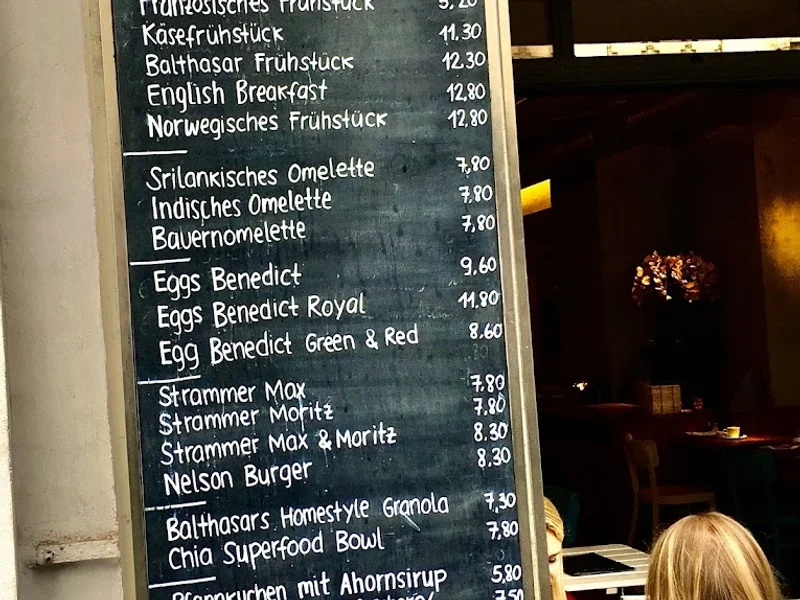 Französisches Frühstück 5,20
Käsefrühstück 11.30
Balthasar Frühstück 12.30
English Breakfast 12,80
Norwegisches Frühstück 12,80
Srilankisches Omelette 7,80
Indisches Omelette 7,80
Bauernomelette 7,80
Eggs Benedict 9.60
Eggs Benedict Royal 11,80
Egg Benedict Green & Red 8.60
Strammer Max 7.80
Strammer Moritz 7.80
Strammer Max & Moritz 8.30
Nelson Burger 8,30
Balthasars Homestyle Granola 7,30
Chia Superfood Bowl 7,80
Pfannkuchen mit Ahornsirup 5,80
7,50